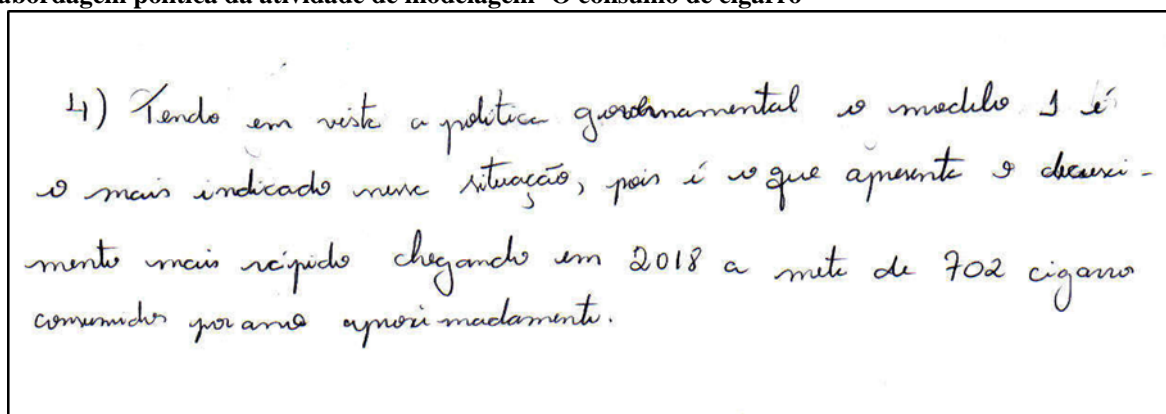 abordagem política da atividade de modelagem "O consumo de cigarro"
4) Tendo em vista a política governamental o modelo 1 é
o mais indicado nessa situação, pois é o que apresenta o decresci-
mento mais rápido chegando em 2018 a meta de 702 cigarro
consumidos por ano aproximadamente.